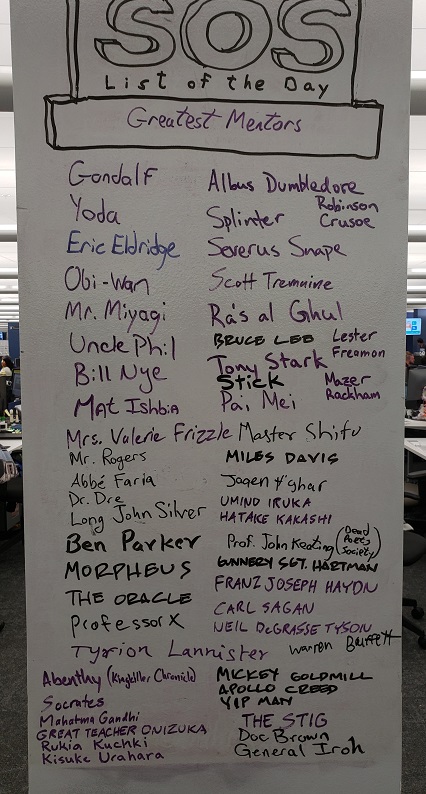 SOS
List of the Day
Greatest Mentors
Gandalf
Yoda
Eric Eldridge
Obi-Wan
Mr. Miyagi
Uncle Phil
Bill Nye
Mat Ishbia
Mrs. Valerie Frizzle
Mr. Rogers
Abbé Faria
Dr. Dre
Long John Silver
Ben Parker
MORPHEUS
THE ORACLE
Professor X
Tyrion Lannister
Abenthy (Kingkiller Chronicle)
Socrates
Mahatma Gandhi
GREAT TEACHER ONIZUKA
Rukia Kuchki
Kisuke Urahara
Albus Dumbledore
Robinson
Crusoe
Splinter
Severus Snape
Scott Tremaine
Ra's al Ghul
BRUCE LEE
Lester
Freamon
Tony Stark
Stick
Mazer
Rackham
Pai Mei
Master Shifu
MILES DAVIS
Jaqen H'ghar
UMINO IRUKA
HATAKE KAKASHI
Prof. John Keating (Dead
Poets
Society)
GUNNERY SGT. HARTMAN
FRANZ JOSEPH HAYDN
CARL SAGAN
NEIL DeGRASSE TYSON
Warren Buffett
MICKEY GOLDMILL
APOLLO CREED
YIP MAN
THE STIG
Doc Brown
General Iroh